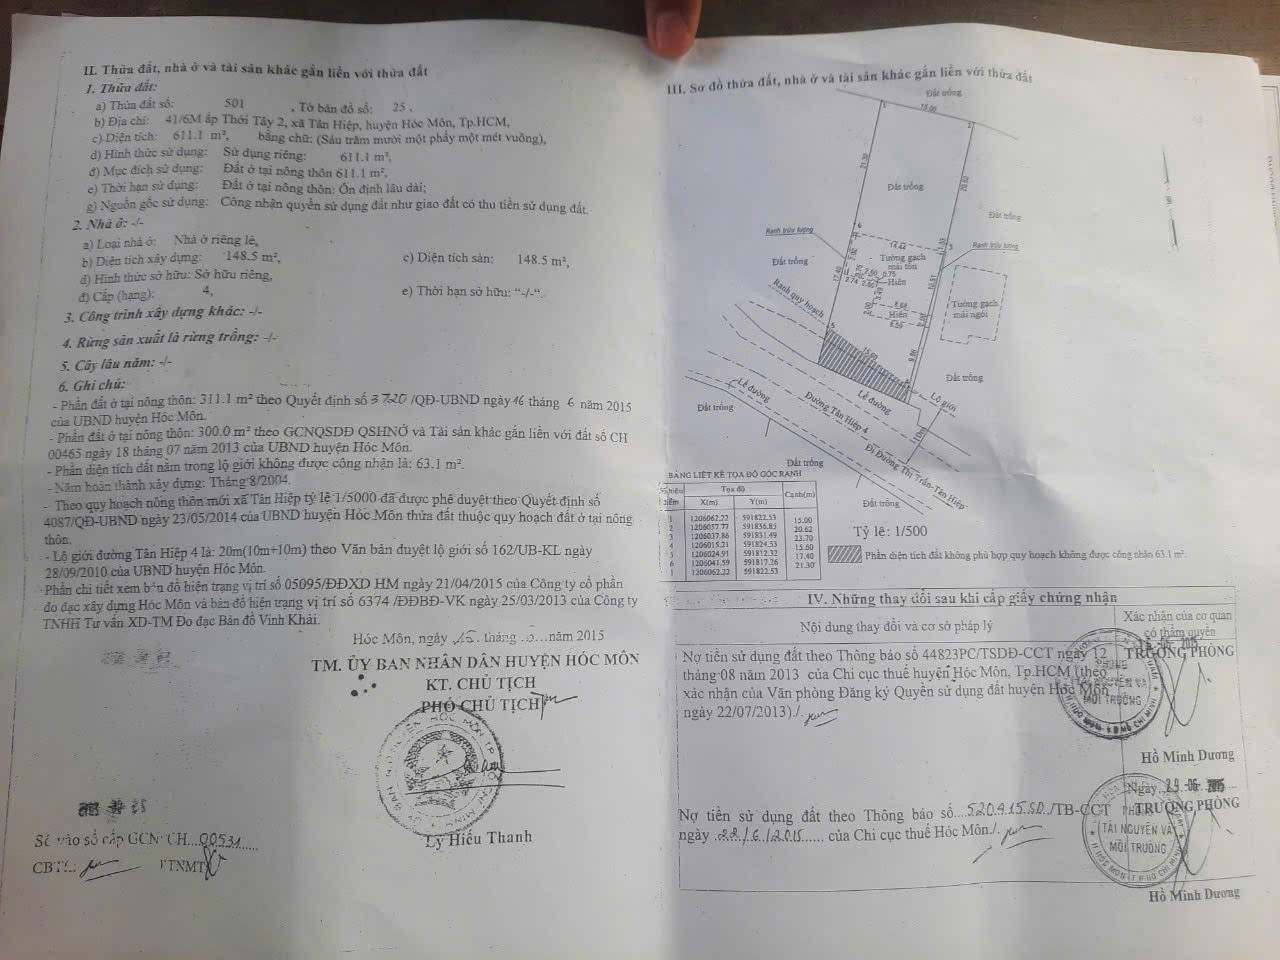 II. Thửa đất, nhà ở và tài sản khác gắn liền với thửa đất
1. Thửa đất:
a) Thửa đất số: 501 , Tờ bản đồ số: 25 .
b) Địa chỉ: 41/6M ấp Thới Tây 2, xã Tân Hiệp, huyện Hóc Môn, Tp.HCM,
c) Diện tích: 611.1 m², bằng chữ: (Sáu trăm mười một phẩy một mét vuông),
d) Hình thức sử dụng: Sử dụng riêng: 611.1 m²,
đ) Mục đích sử dụng: Đất ở tại nông thôn 611.1 m²,
e) Thời hạn sử dụng: Đất ở tại nông thôn: Ổn định lâu dài;
g) Nguồn gốc sử dụng: Công nhận quyền sử dụng đất như giao đất có thu tiền sử dụng đất.
2. Nhà ở: -/-
a) Loại nhà ở: Nhà ở riêng lẻ,
b) Diện tích xây dựng: 148.5 m², c) Diện tích sàn: 148.5 m²,
d) Hình thức sở hữu: Sở hữu riêng,
đ) Cấp (hạng): 4, e) Thời hạn sở hữu: "-/-".
3. Công trình xây dựng khác: -/-
4. Rừng sản xuất là rừng trồng: -/-
5. Cây lâu năm: -/-
6. Ghi chú:
- Phần đất ở tại nông thôn: 311.1 m² theo Quyết định số 3720/QĐ-UBND ngày 16 tháng 6 năm 2015
của UBND huyện Hóc Môn.
- Phần đất ở tại nông thôn: 300.0 m² theo GCNQSDĐ QSHNỞ và Tài sản khác gắn liền với đất số CH
00465 ngày 18 tháng 07 năm 2013 của UBND huyện Hóc Môn.
- Phần diện tích đất nằm trong lộ giới không được công nhận là: 63.1 m².
- Năm hoàn thành xây dựng: Tháng 8/2004.
- Theo quy hoạch nông thôn mới xã Tân Hiệp tỷ lệ 1/5000 đã được phê duyệt theo Quyết định số
4087/QĐ-UBND ngày 23/05/2014 của UBND huyện Hóc Môn thửa đất thuộc quy hoạch đất ở tại nông
thôn.
- Lộ giới đường Tân Hiệp 4 là: 20m(10m+10m) theo Văn bản duyệt lộ giới số 162/UB-KL ngày
28/09/2010 của UBND huyện Hóc Môn.
Phần chi tiết xem bản đồ hiện trạng vị trí số 05095/ĐĐXD HM ngày 21/04/2015 của Công ty cổ phần
đo đạc xây dựng Hóc Môn và bản đồ hiện trạng vị trí số 6374 /ĐĐBĐ-VK ngày 25/03/2013 của Công ty
TNHH Tư vấn XD-TM Đo đạc Bản đồ Vinh Khải.
Hóc Môn, ngày tháng năm 2015
TM. ỦY BAN NHÂN DÂN HUYỆN HÓC MÔN
KT. CHỦ TỊCH
PHÓ CHỦ TỊCH
Lý Hiếu Thanh
Số vào sổ cấp GCN: CH 00531
III. Sơ đồ thửa đất, nhà ở và tài sản khác gắn liền với thửa đất
Đất trống
15.00
21.30
20.62
Đất trống
Đất trống
Ranh trùy tượng
Ranh trùy tượng
14.42
Đất trống
Tường gạch
mái tôn
17.40
Hiên
Hiên
Tường gạch
mái ngói
Ranh quy hoạch
15.60
9.86
Đất trống
Lộ giới
Lề đường
Lề đường
Đường Tân Hiệp 4
Đất trống
Đi Đường Thị Trấn-Tân Hiệp
Đất trống
Đất trống
BẢNG LIỆT KÊ TỌA ĐỘ GÓC RANH
Số hiệu điểm Tọa độ Cạnh(m)
X(m) Y(m)
1 1206062.22 591822.53
15.00
2 1206057.77 591836.85
20.62
3 1206037.86 591831.49
23.70
4 1206015.21 591824.53
15.60
5 1206024.91 591812.32
17.40
6 1206041.59 591817.26
21.30
1 1206062.22 591822.53
Tỷ lệ: 1/500
Phần diện tích đất không phù hợp quy hoạch không được công nhận 63.1 m².
IV. Những thay đổi sau khi cấp giấy chứng nhận
Nội dung thay đổi và cơ sở pháp lý
Xác nhận của cơ quan
có thẩm quyền
Nợ tiền sử dụng đất theo Thông báo số 44823PC/TSDĐ-CCT ngày 12
tháng 08 năm 2013 của Chi cục thuế huyện Hóc Môn, Tp.HCM (theo
xác nhận của Văn phòng Đăng ký Quyền sử dụng đất huyện Hóc Môn
ngày 22/07/2013)./.
TRƯỞNG PHÒNG
PHÒNG
TÀI NGUYÊN VÀ
MÔI TRƯỜNG
Hồ Minh Dương
Nợ tiền sử dụng đất theo Thông báo số 520415.SD /TB-CCT
ngày 22/6/2015 của Chi cục thuế Hóc Môn./.
Ngày 29-06-2015
TRƯỞNG PHÒNG
PHÒNG
TÀI NGUYÊN VÀ
MÔI TRƯỜNG
Hồ Minh Dương